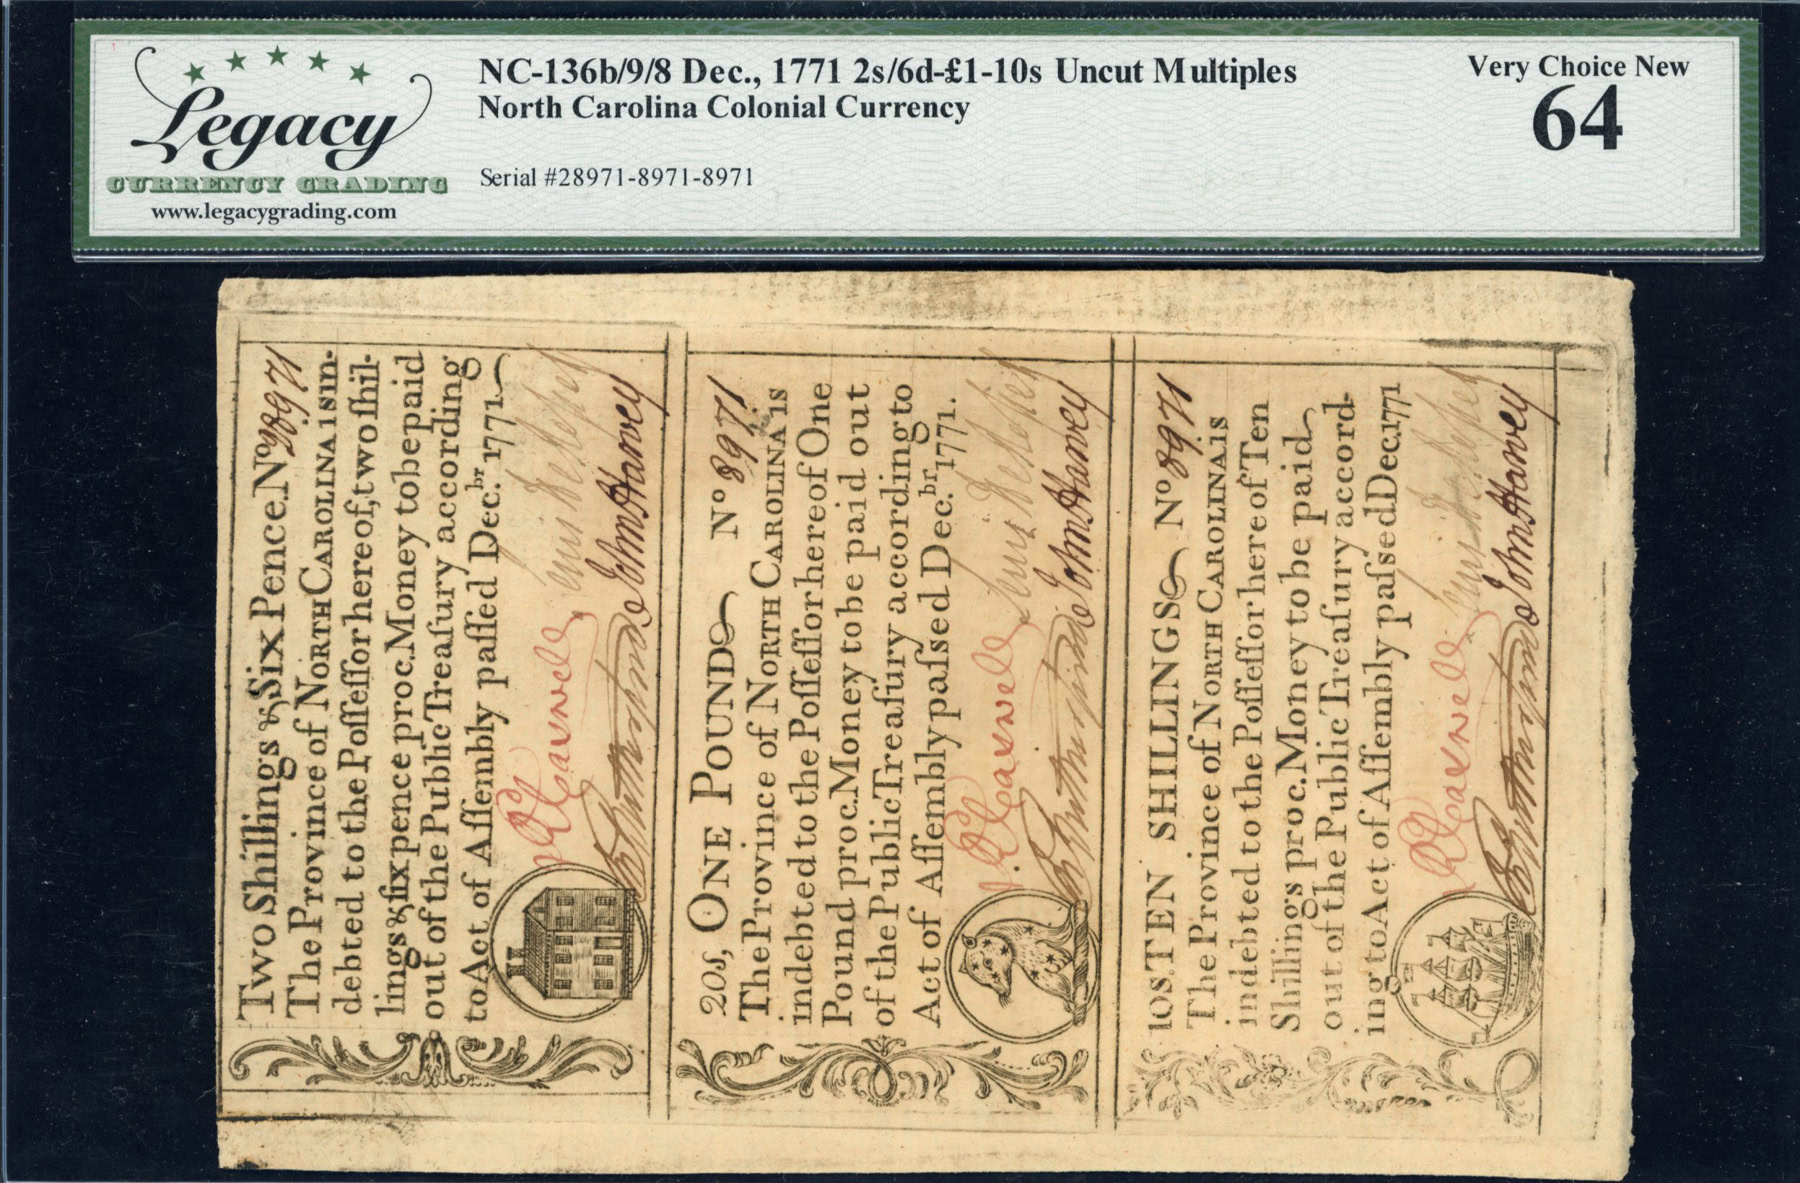 Legacy
CURRENCY GRADING
www.legacygrading.com
NC-136b/9/8 Dec., 1771 2s/6d-£1-10s Uncut Multiples
North Carolina Colonial Currency
Serial #28971-8971-8971
Very Choice New
64
Two Shillings & Six Pence. No 28971
The Province of NORTH CAROLINA is in-
debted to the Poſſeſſor hereof, two ſhil-
lings & ſixpence proc. Money to be paid
out of the Public Treaſury according
to Act of Aſſembly paſſed Dec.br 1771
R Caswell
Lewis
John Harvey
20s, ONE POUND No 8971
The Province of NORTH CAROLINA is
indebted to the Poſſeſſor hereof One
Pound proc. Money to be paid out
of the Public Treaſury according to
Act of Aſſembly paſsed Dec.br 1771.
R Caswell
Lewis
John Harvey
10S TEN SHILLINGS No 8971
The Province of NORTH CAROLINA is
indebted to the Poſſeſſor hereof Ten
Shillings proc. Money to be paid
out of the Public Treaſury accord-
ing to Act of Aſſembly paſsed Dec. 1771
R Caswell
Lewis
John Harvey